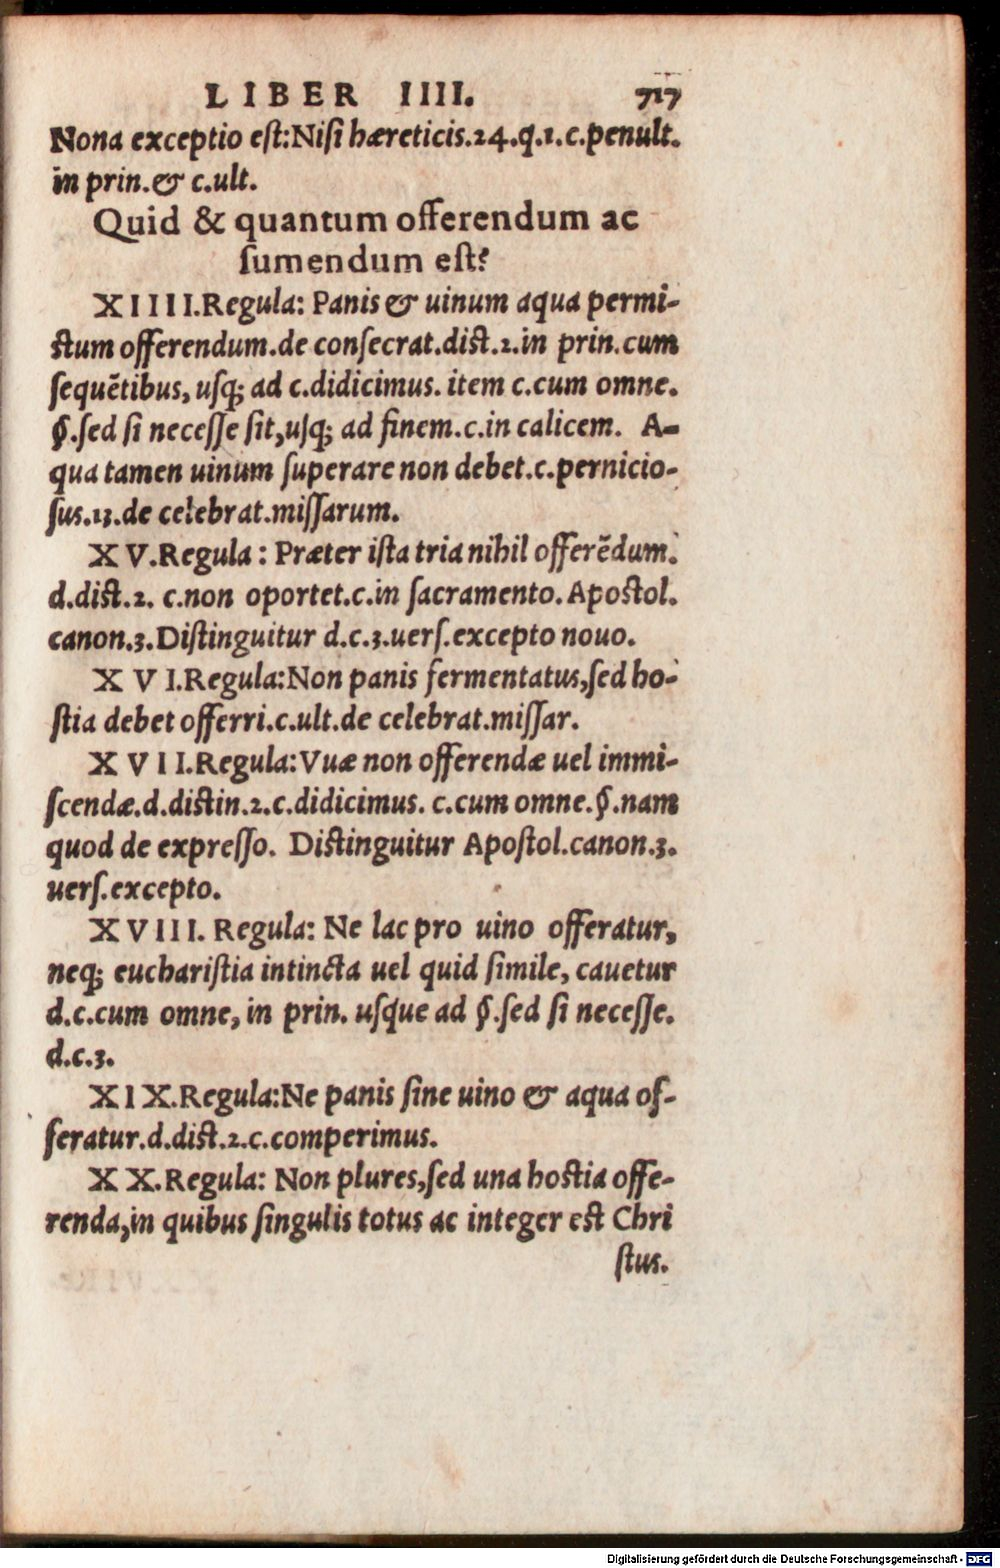 LIBER IIII. 717
Nona exceptio eſt:Niſi hæreticis.24.q.1.c.penult.
in prin.& c.ult.
Quid & quantum offerendum ac
ſumendum eſt?
XIIII.Regula: Panis & uinum aqua permi-
ſtum offerendum.de conſecrat.diſt.2.in prin.cum
ſequētibus, uſq; ad c.didicimus. item c.cum omne.
§.ſed ſi neceſſe ſit,uſq; ad finem.c.in calicem. A-
qua tamen uinum ſuperare non debet.c.pernicio-
ſus.13.de celebrat.miſſarum.
XV.Regula : Præter iſta tria nihil offerēdum.
d.diſt.2. c.non oportet.c.in ſacramento. Apoſtol.
canon.3.Diſtinguitur d.c.3.uerſ.excepto nouo.
XVI.Regula:Non panis fermentatus,ſed ho-
ſtia debet offerri.c.ult.de celebrat.miſſar.
XVII.Regula:Vuæ non offerendæ uel immi-
ſcendæ.d.diſtin.2.c.didicimus. c.cum omne.§.nam
quod de expreſſo. Diſtinguitur Apoſtol.canon.3.
uerſ.excepto.
XVIII. Regula: Ne lac pro uino offeratur,
neq; euchariſtia intincta uel quid ſimile, cauetur
d.c.cum omne, in prin. uſque ad §.ſed ſi neceſſe.
d.c.3.
XIX.Regula:Ne panis ſine uino & aqua of-
feratur.d.diſt.2.c.comperimus.
XX.Regula: Non plures,ſed una hoſtia offe-
renda,in quibus ſingulis totus ac integer eſt Chri
ſtus.
Digitalisierung gefördert durch die Deutsche Forschungsgemeinschaft - DFG